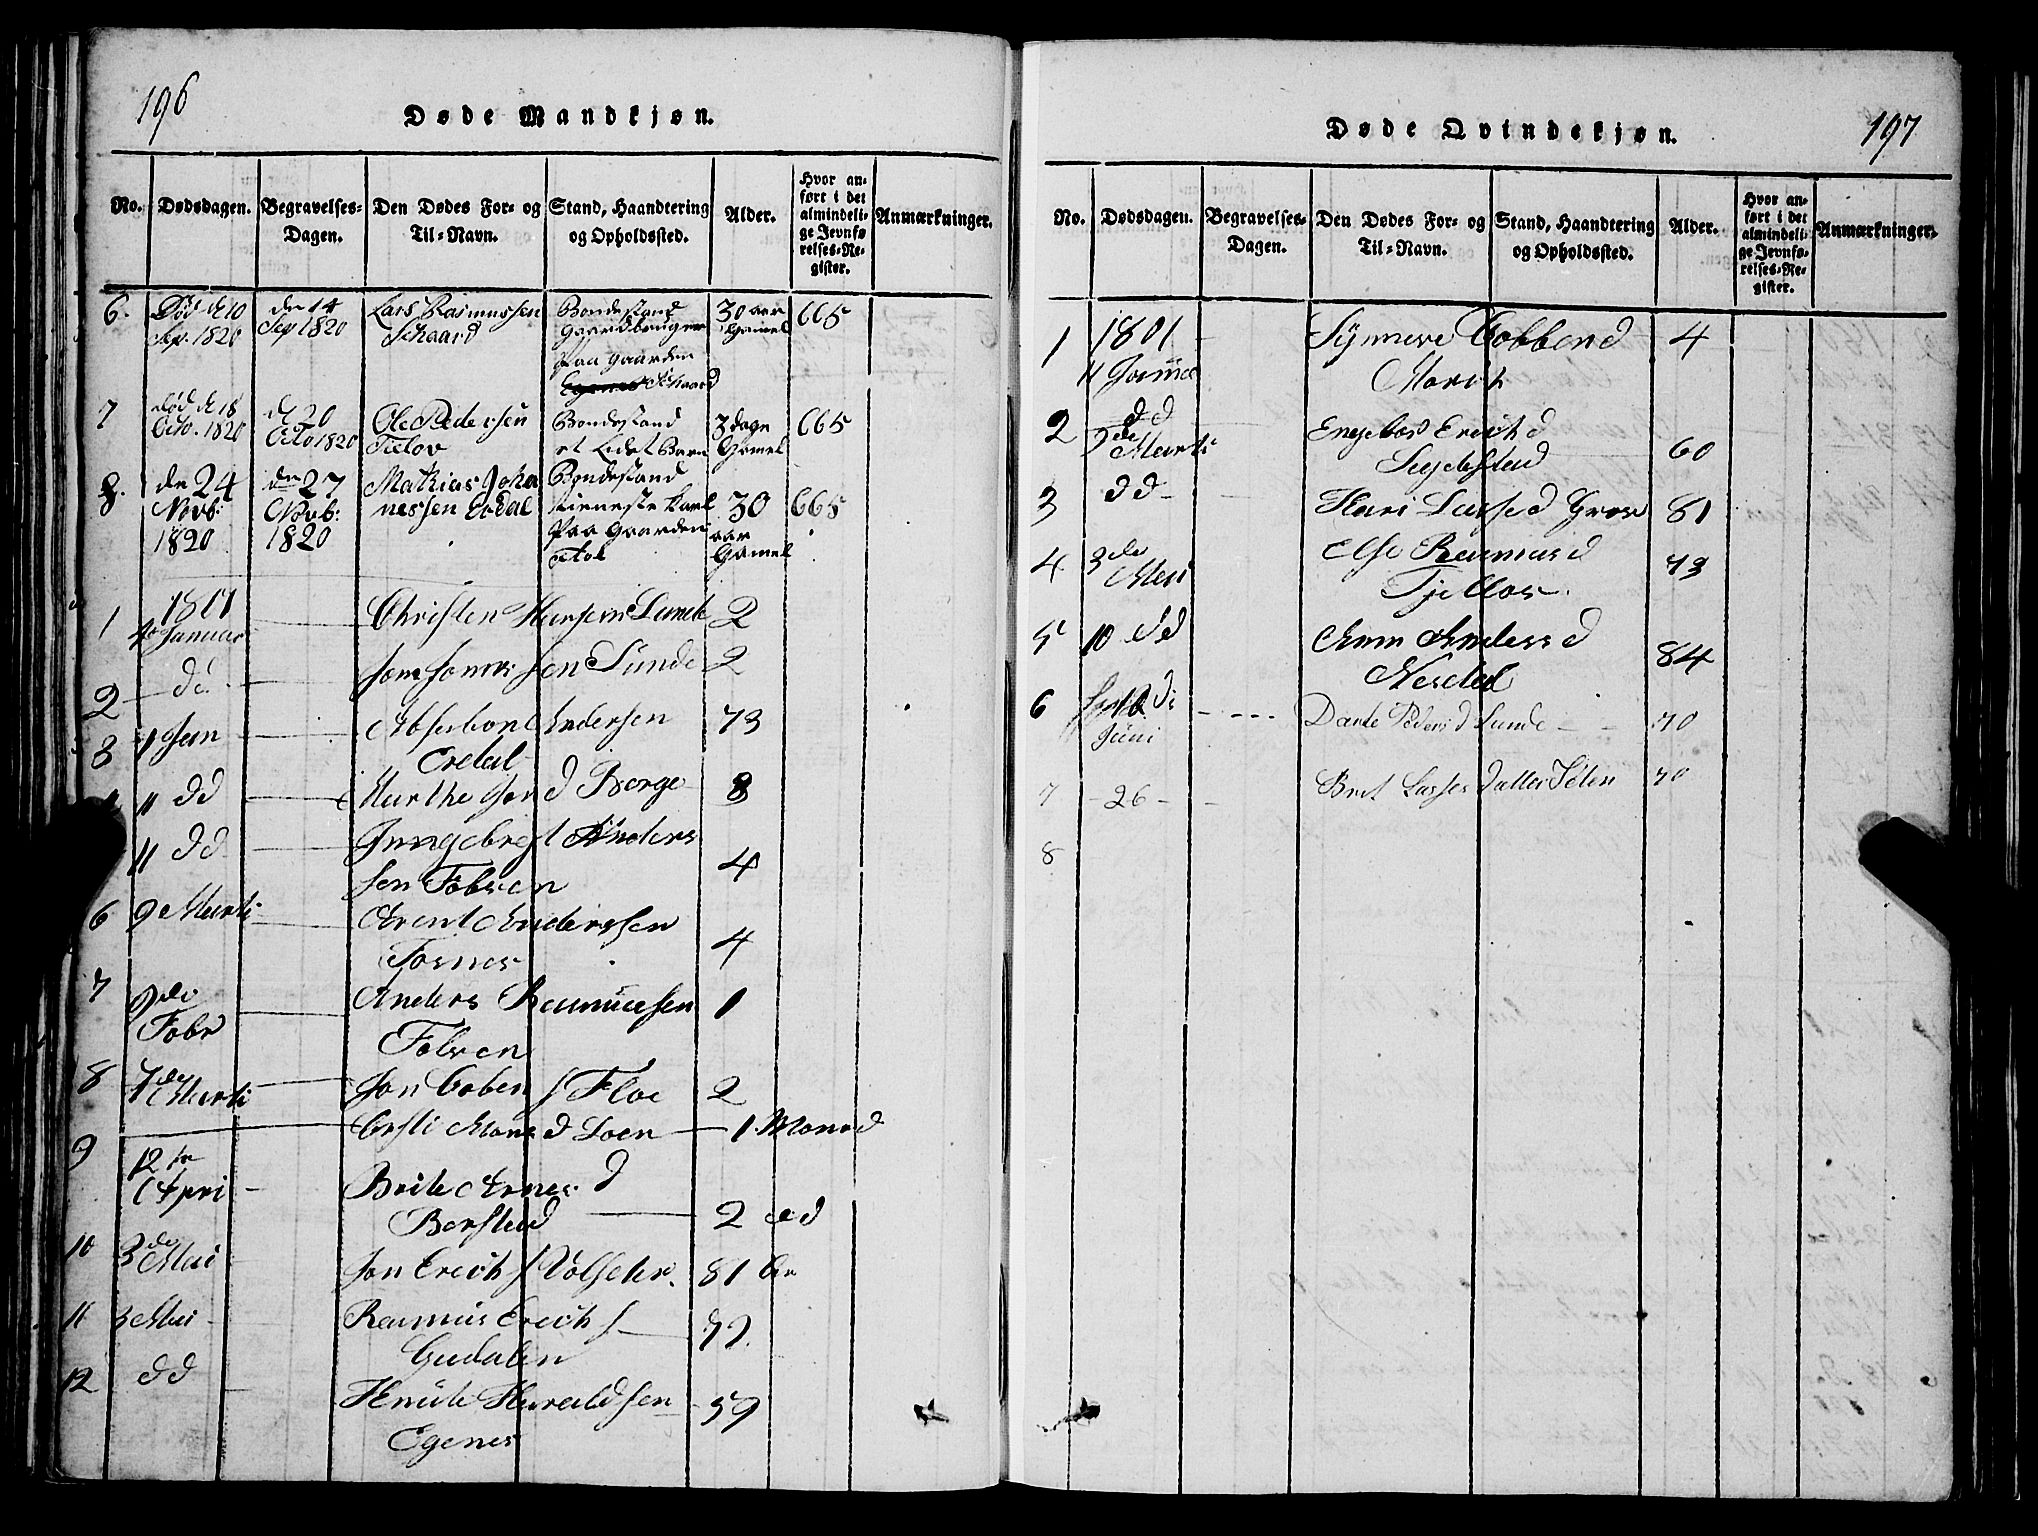 196
Døde Mandkjøn.
No. Dødsdagen. Begravelses-Dagen. Den Dødes For- og Til-Navn. Stand, Haandtering og Opholdssted. Alder. Hvor anført i det almindelige Jevnførelses-Register. Anmærkninger.
6. Død de 10 Sep. 1820 den 14 Sep 1820 Lars Rasmussen Schaard Bondestand Gaardbruger Paa Gaarden Schaard 30 aar Gamel 665
7 død de 18 Octo. 1820 de 20 Octo 1820 Ole Pedersen Bondestand et Lidet Barn 3 dage Gamel 665
8. de 24 Novb: 1820 den 27 Novb: 1820 Mathias Johannessen Erdal Bondestand tieneste Karl Paa Gaarden 30 aar Gamel 665
1 1801 4 Januar Christen Hansen Sunde 2
2 dd Jon Jons sen Sunde 2
3 11 Jan Absalon Andersen 73
Erdal
11 dd Marthe Jon d Berge 8
11 dd Inngebregt Anders
sen 4
6 9 Marti Arent Anderssen
Fosnes 4
7 9de Febr Anders Rasmussen 1
8 7de Marti Jon s Floe 2
Mons d Loen 1 Monad
9 12te Apri Brite Arnes d
Berstad 2 dd
10 3de Mai Jon Erich s 81 Ar
11 3 Mai Rasmus Erich s
Gudalen 79
12 dd Knude Haraldsen 59
Egenes
197
Døde Qvindekjøn.
No. Dødsdagen. Begravelses-Dagen. Den Dødes For- og Til-Navn. Stand, Haandtering og Opholdssted. Alder. Hvor anført i det almindelige Jevnførelses-Register. Anmærkninger.
1 1801 11 Janua Synneve d 4
2 dd 2de Marti Engebor Erich d
60
3 dd Kari Lasse d 81
4 3de Mai Else Rasmus d 73
5 10 dd Anna Anders d 84
Nesdal
6 10 Juni Dorte Peders d Sunde 70
7 26 Brit Lasses datter 70
8